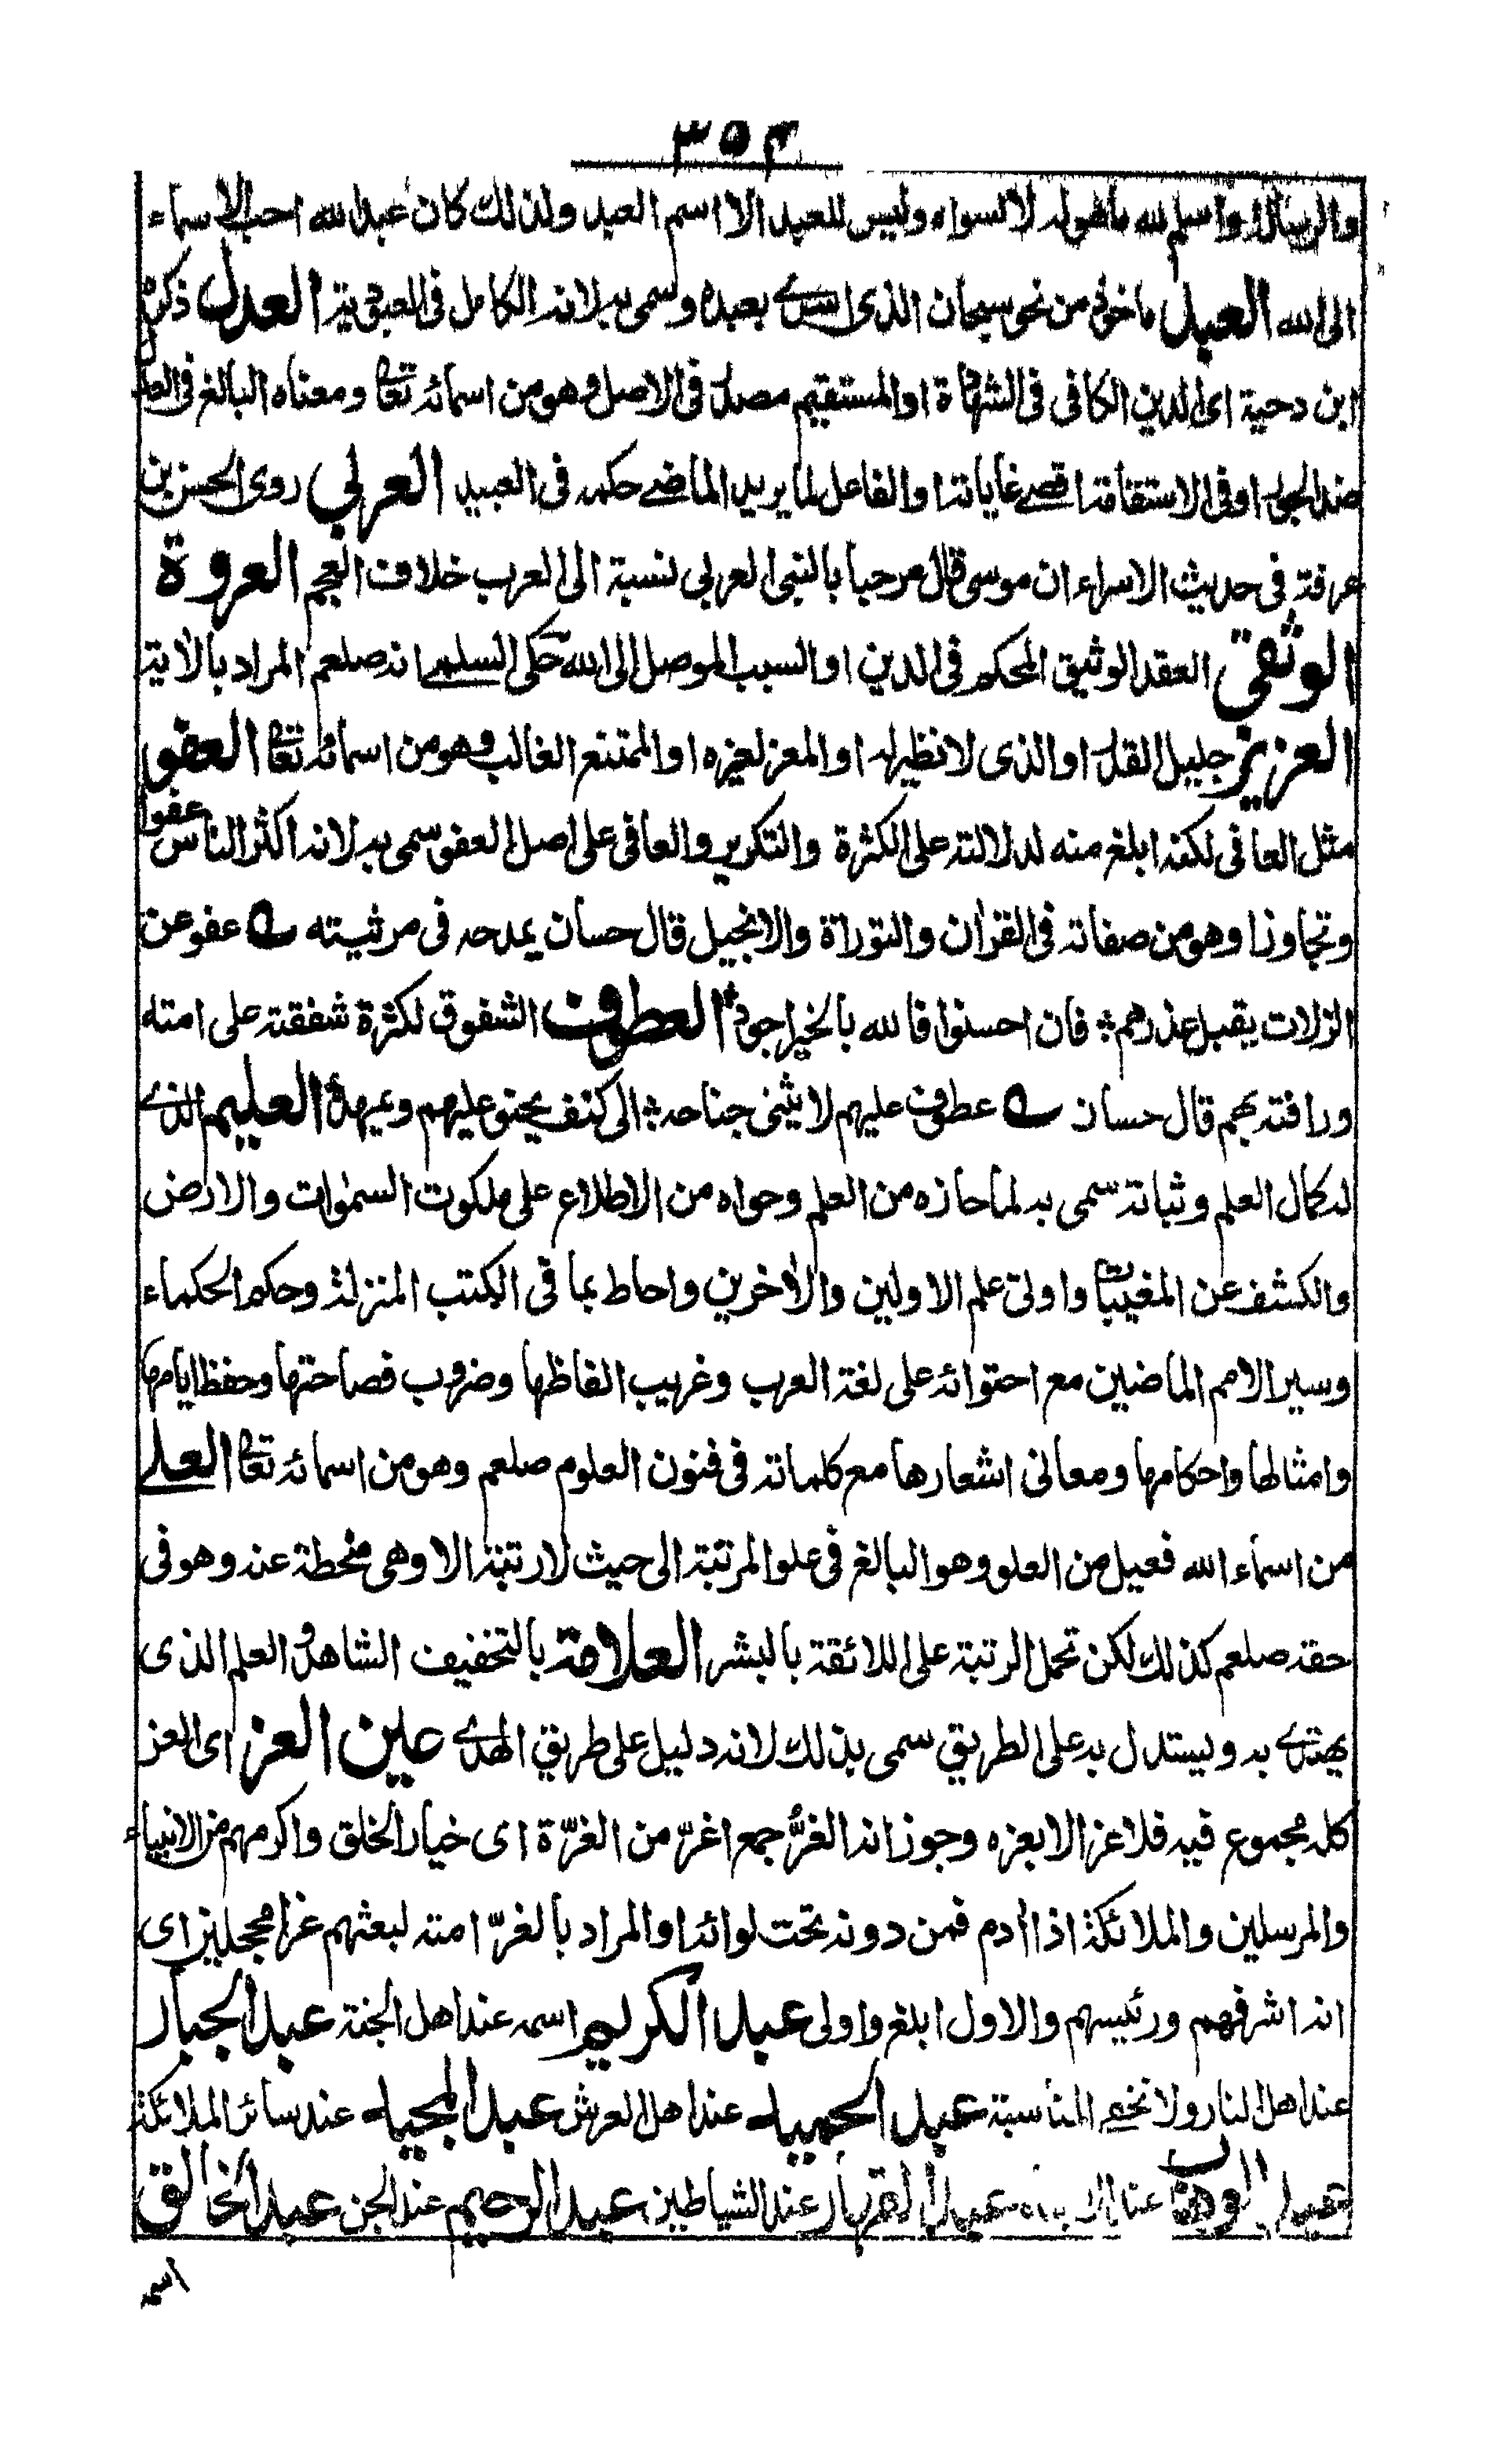 ٣٥٣
والرسالة واسلم لله ما هوله لا لسواه وليس للعبد الا اسم العبد ولذلك كان عبدالله احب الاسماء
الى الله العبد ماخوذ من نحو سبحان الذى اسرے بعبده وسمى به لانه الكامل فى العبودية العدل ذكره
ابن دحية اى الدين الكافى فى الشهادة او المستقيم مصدر فى الاصل وهو من اسمائه تعا ومعناه البالغ فى العدل
ضد الجور او فى الاستقامة اقصے غاياته او الفاعل لما يريد الماضے حكمه فى العبيد العربي روى الحسن بن
عرفة فى حديث الاسراء ان موسى قال مرحبا بالنبى العربى نسبة الى العرب خلاف العجم العروة
الوثقى العقد الوثيق المحكم فى الدين او السبب الموصل الى الله حكى السلمے انه صلعم المراد بالاية
العزيز جليل القدر او الذى لا نظير له او المعز لغيره او الممتنع الغالب وهو من اسمائه تعا العفو
مثل العافى لكنه ابلغ منه لدلالته على الكثرة والتكرير والعافى على اصل العفو سمى به لانه اكثر الناس عفوا
وتجاوزا وهو من صفاته فى القران والتوراة والانجيل قال حسان يمدحه فى مرثيته عفو عن
الزلات يقبل عذرهم فان احسنوا فالله بالخير اجود العطوف الشفوق لكثرة شفقته على امته
ورافته بهم قال حسان عطوف عليهم لا يثنى جناحه الى كنف يحنو عليهم ويمهد العليم الذے
له كمال العلم وثباته سمى به لما حازه من العلم وحواه من الاطلاع على ملكوت السموات والارض
والكشف عن المغيبات واوتى علم الاولين والاخرين واحاط بما فى الكتب المنزلة وحكم الحكماء
وسير الامم الماضين مع احتوائه على لغة العرب وغريب الفاظها وضروب فصاحتها وحفظ ايامها
وامثالها واحكامها ومعانى اشعارها مع كلماته فى فنون العلوم صلعم وهو من اسمائه تعا العلے
من اسماء الله فعيل من العلو وهو البالغ فى علو المرتبة الى حيث لا رتبة الا وهى منحطة عنه وهو فى
حقه صلعم كذلك لكن تحمل الرتبة على اللائقة بالبشر العلامة بالتخفيف الشاهد والعلم الذى
يهتدے به ويستدل به على الطريق سمى بذلك لانه دليل على طريق الهدے عين العز اى العز
كله مجموع فيه فلا عز الا بعزه وجوز انه الغرّ جمع اغرّ من الغرّة اى خيار الخلق واكرمهم من الانبياء
والمرسلين والملائكة اذ ادم فمن دونه تحت لوائه او المراد بالغرّ امته لبعثهم غرا محجلين اى
انه اشرفهم ورئيسهم والاول ابلغ واولى عبد الكريم اسمه عند اهل الجنة عبد الجبار
عند اهل النار ولا تخفے المناسبة عبد الحميد عند اهل العرش عبد المجيد عند سائر الملائكة
عبد الوهاب عند الانبياء عبد القهار عند الشياطين عبد الرحيم عند الجن عبد الخالق
اسمه